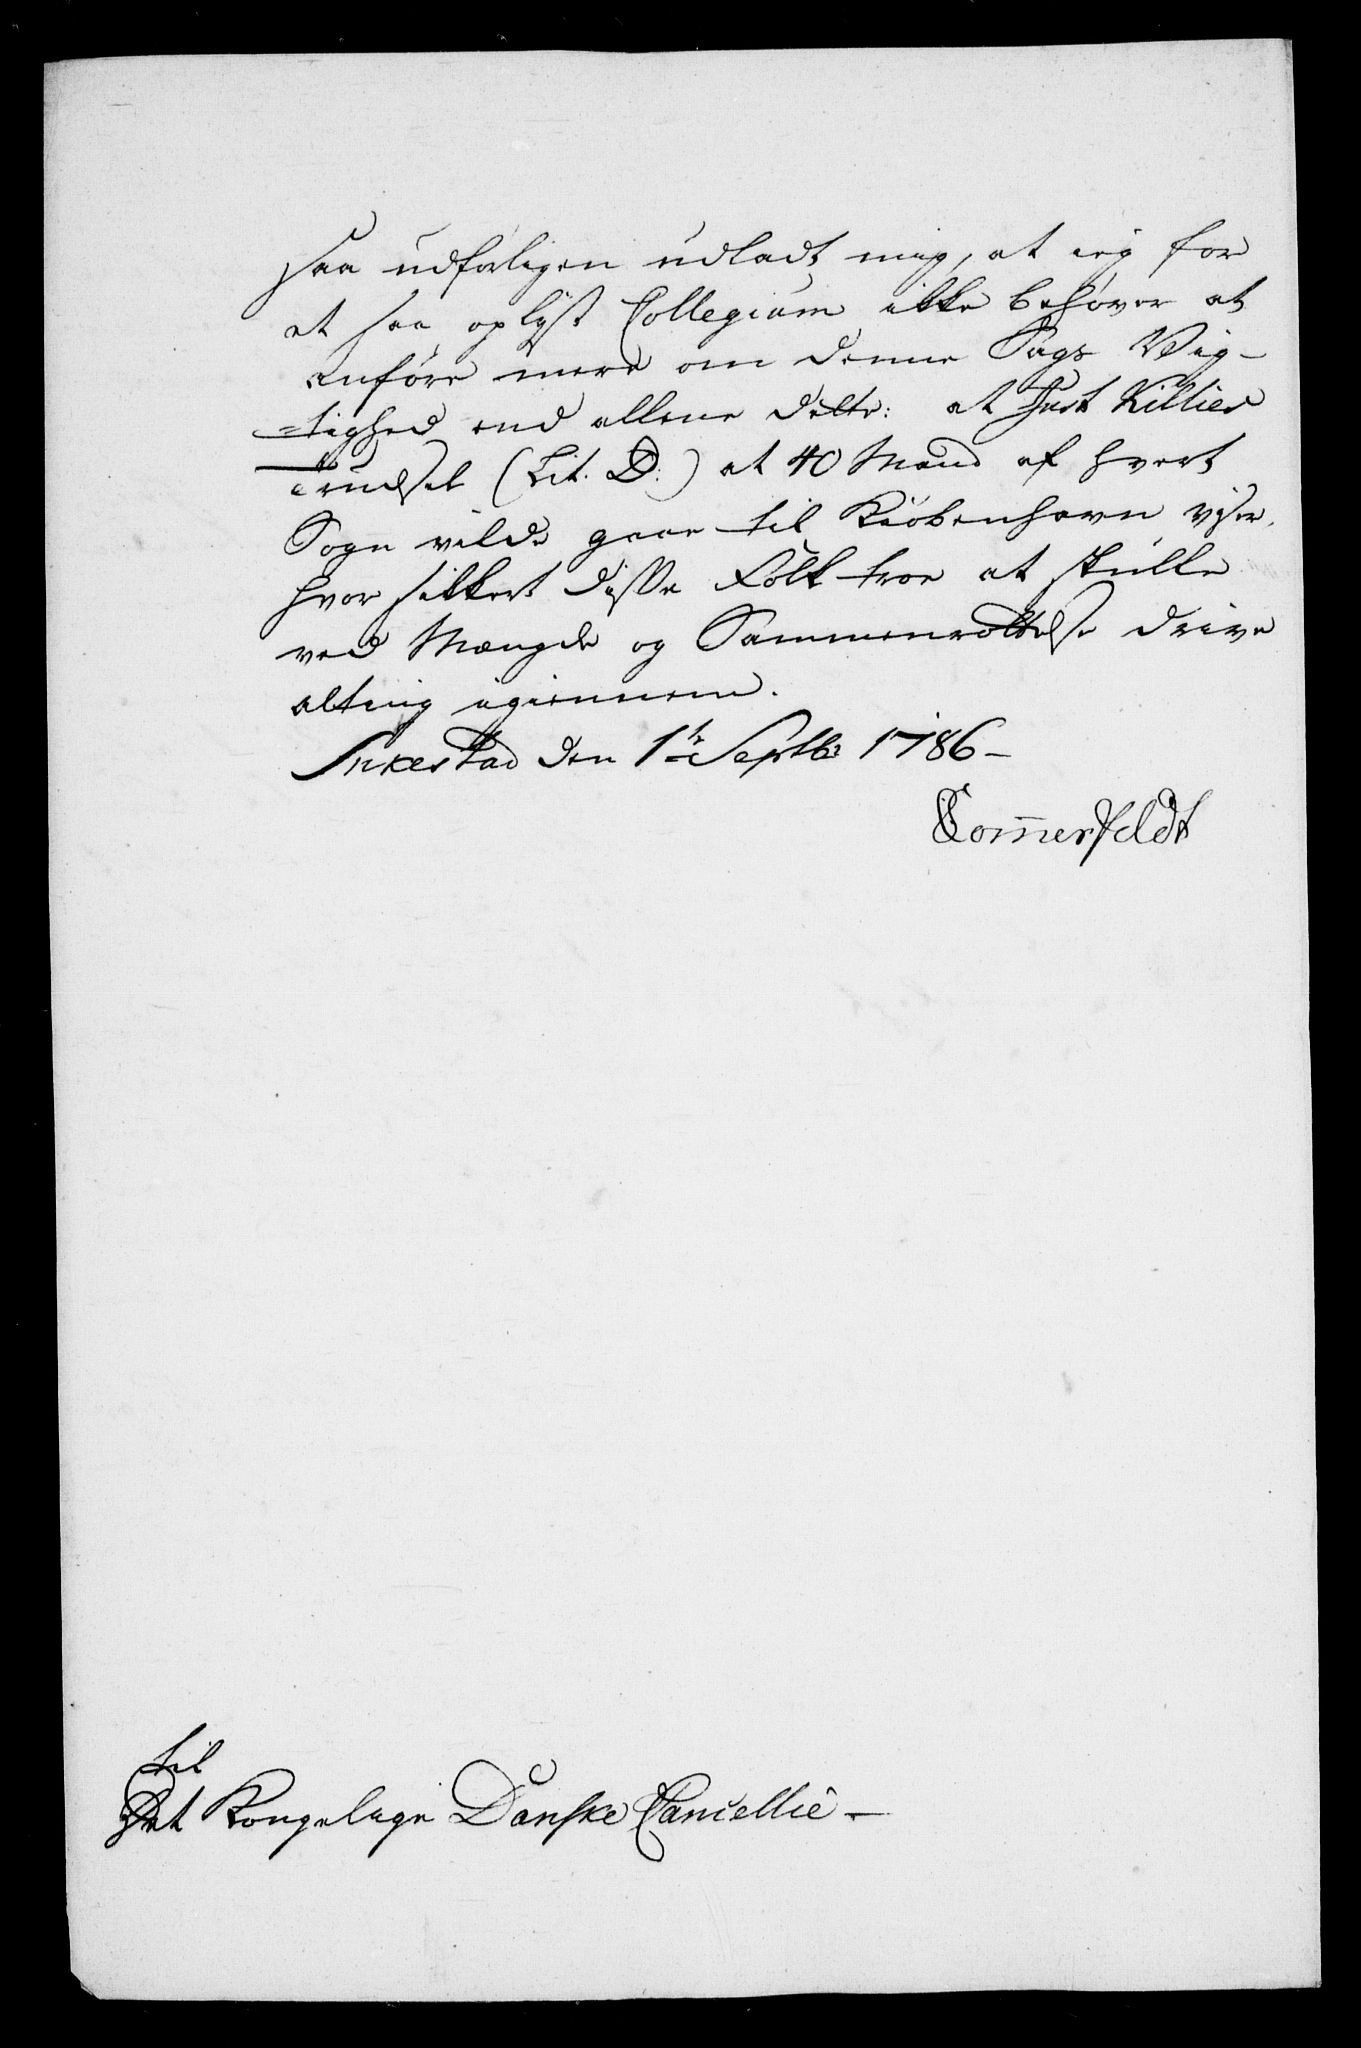 saa udførligen udladt mig, at ieg for
et saa oplyst Collegium ikke behøver at
anføre mere om denne Sags Vig-
=tighed end allene dette: at Just Killies
Trudsel (Lit. D:) at 40 Mand af hvert
Sogn vilde gaae til Kiøbenhavn viser,
hvor sikkert disse Folk troe at skulle
ved Mængde og Sammenrottelse drive
alting igiennem.
Sukestad den 1te Septb: 1786 –
Sommerfeldt
Til
Det Kongelige Danske Cancellie –